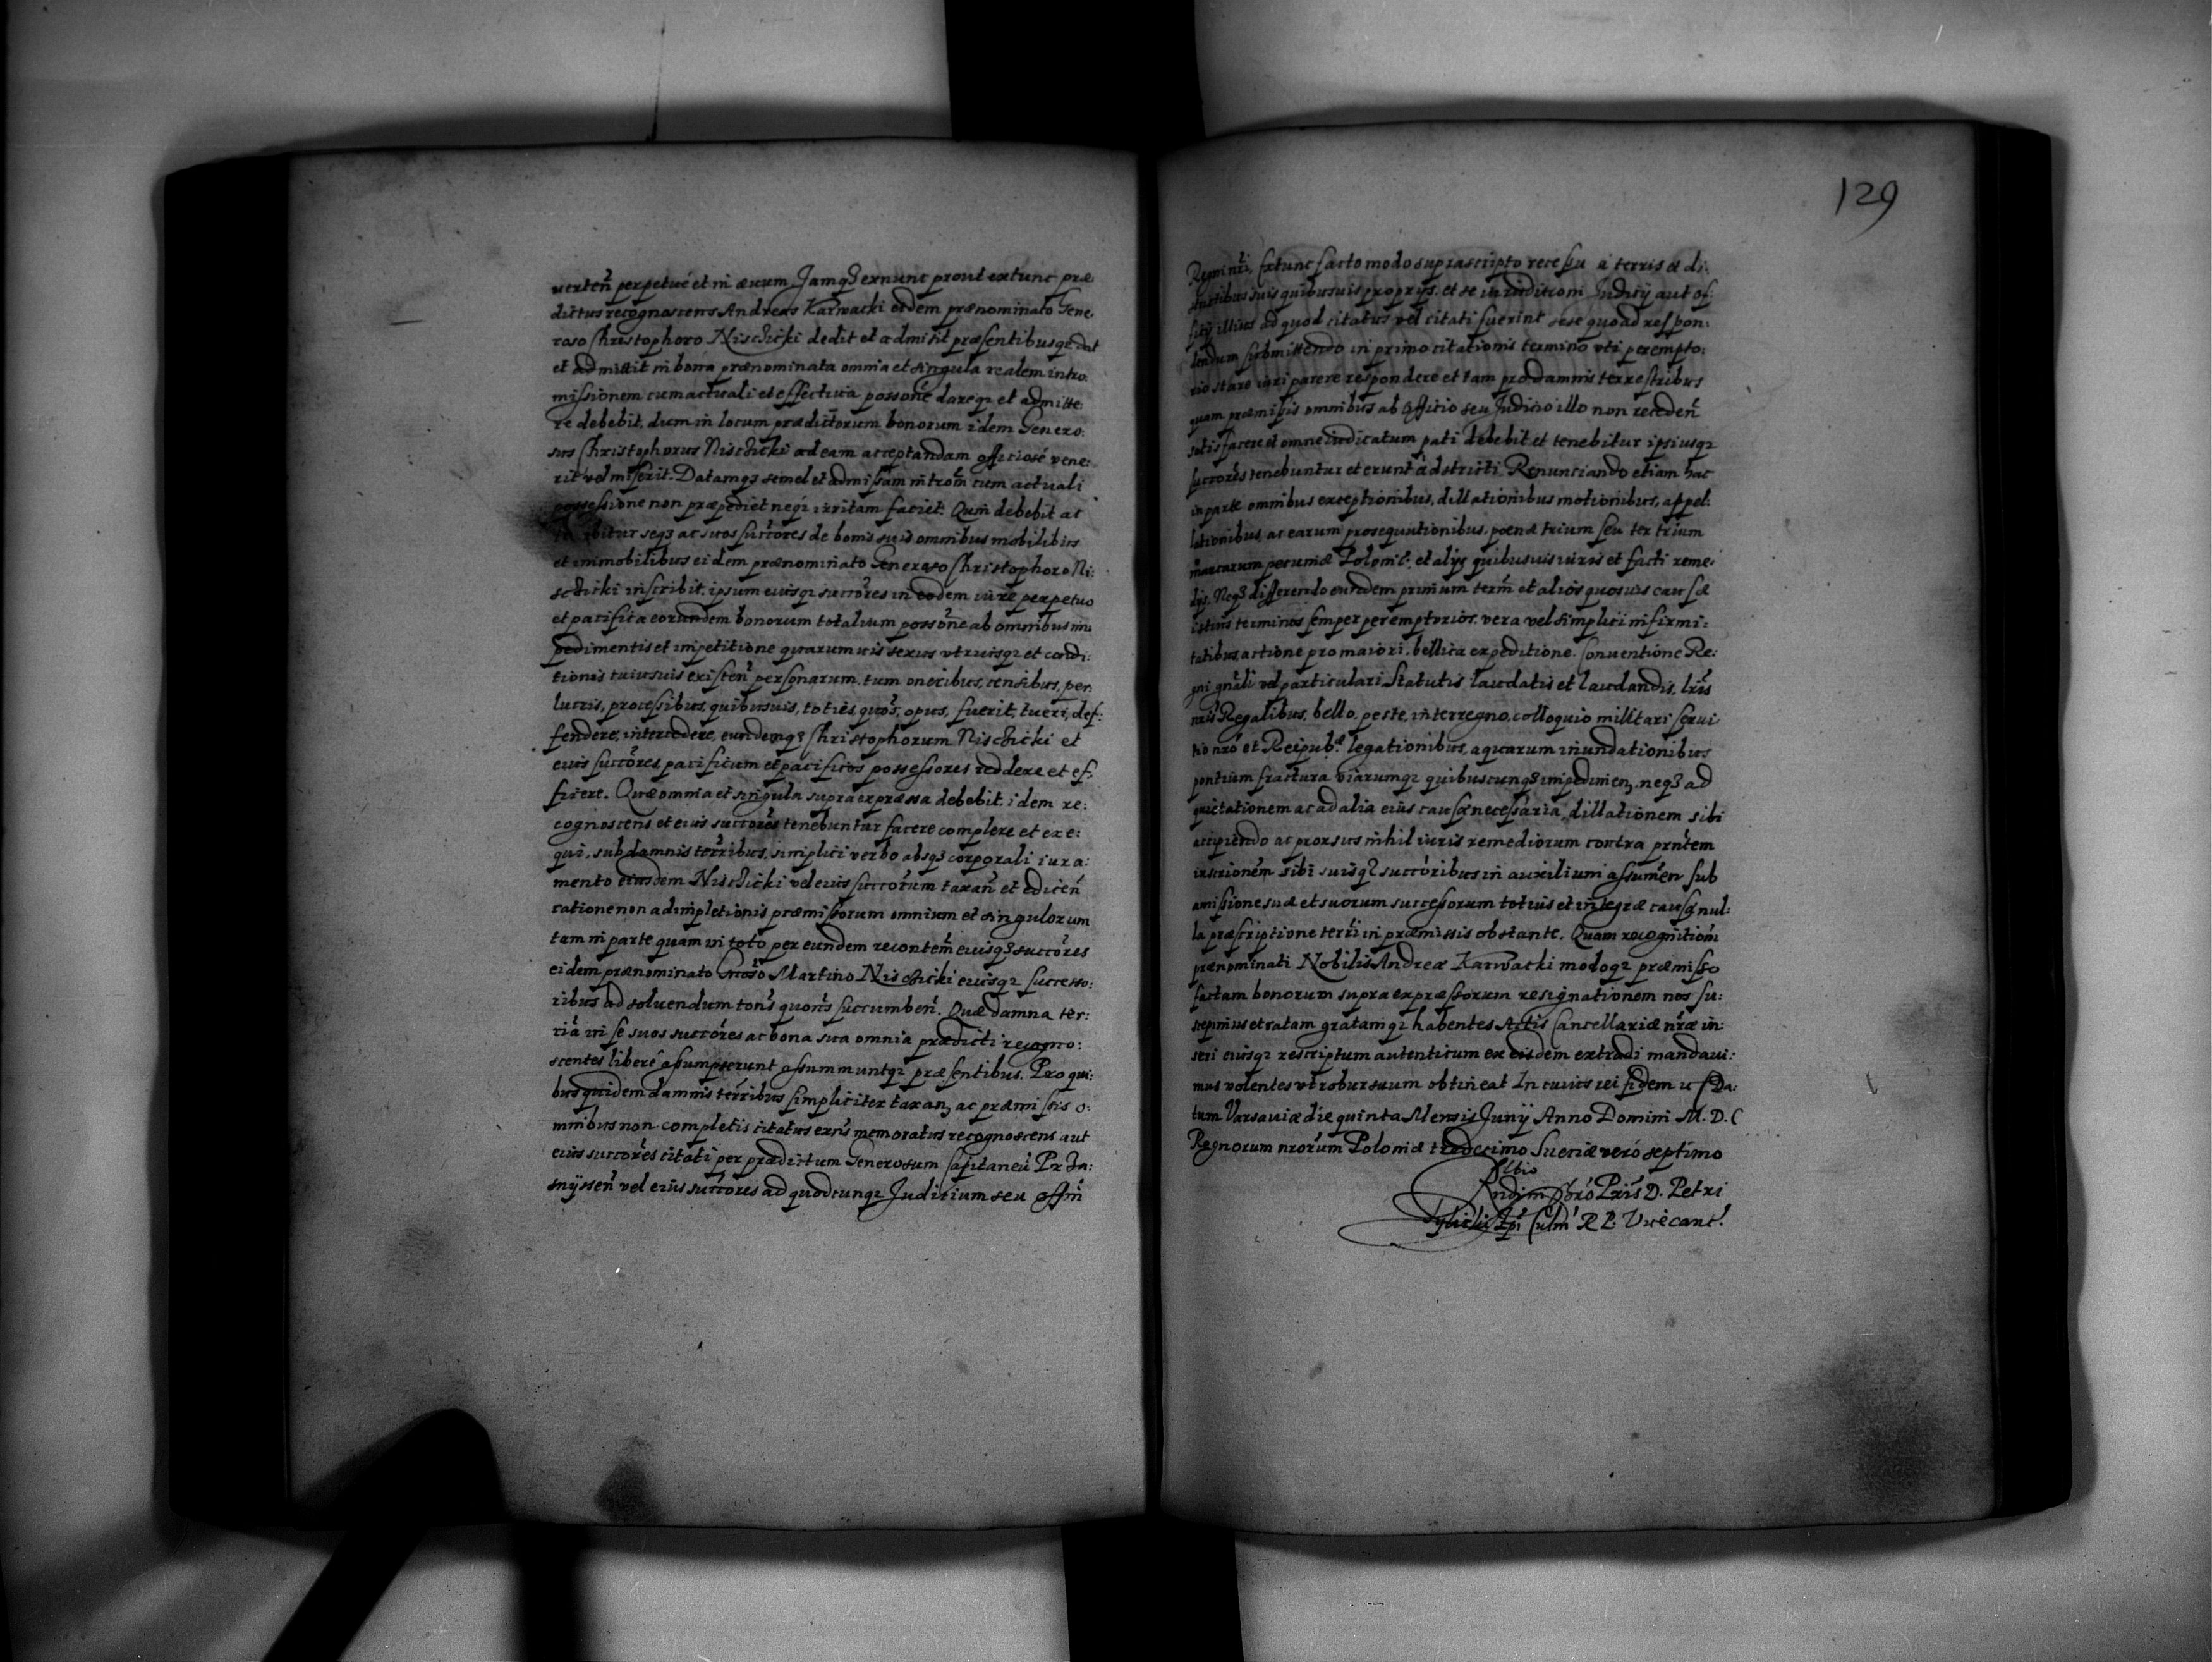 uerteñ perpetué et in æuum. Jamq3 exnunc prout extunc præ
dictus recognoscens Andreas Karwacki eidem prænominato Gene,
roso Christophoro Nischicki dedit et admisit præsentibusq2 dat
et admittit in bona prænominata omnia et singula realem intro,
missionem cum actuali et effectiua possoñe dareq2 et admitte
re debebit, dum in locum prædictorum bonorum idem Genero:
sus Christophorus Nischicki ad eam acceptandam officiosé vene:
rit vel miserit. Datamq3 semel et admissam introm̃ cum actuali
possessione non præpediet neq2 irritam faciet. Quin debebit ac
seq3 ac suos succ̃ores de bonis suis omnibus mobilibus
et immobilibus eidem prænominato Generoso Christophoro Ni:
schicki inscribit. ipsum eiusq2 succ̃ores in eodem iure perpetuo
et pacifica eorundem bonorum totalium possoñe ab omnibus im
pedimentis et impetitione quarumuis sexus vtriusq2 et condi:
tionis cuiusuis existeñ personarum. tum oneribus, censibus, per,
lucris, processibus, quibusuis, toties quos̃, opus, fuerit, tueri, def:
fendere, intercedere, eundemq3 Christophorum Nischicki et
eius succ̃ores pacificum et pacificos possessores reddere et ef:
ficere. Quæ omnia et singula supra expræssa debebit idem re:
cognoscens et eius succ̃ores tenebuntur facere complere et exe:
qui, sub damnis terr̃ibus, simplici verbo absq3 corporali iura:
mento eiusdem Nischicki vel eius succ̃orum taxañ et ediceñ
ratione non adimpletionis præmissorum omnium et singulorum
tam in parte quam in toto per eundem recontem̃ eiusq3 succ̃ores
eidem prænominato Martino Nischicki eiusq2 successo:
ribus ad soluendum tons̃ quons̃ succumbeñ. Quæ damna ter:
riã in se suos succ̃ores ac bona sua omnia prædicti recogno:
scentes liberé assumpserunt assummuntq2 præsentibus. Pro qui:
bus quidem damnis terr̃ibus simpliciter taxan3 ac præmissis o:
mnibus non completis citatus exns̃ memoratus recognoscens aut
eius succ̃ores citati per prædictum Generosum Capitaneũ Prza:
snyssen̄ vel eius succ̃ores ad quodcunq2 Juditium seu offm̃
129
Extunc facto modo suprascripto recessu a terris et di:
suis quibusuis proprys. et se iuriditioni Juditij aut of:
ficij illius ad quod citatus vel citati fuerint sese quoad respon:
dendum submittendo in primo citationis termino vti perempto:
rio stare iuri parere respondere et tam pro damnis terrestribus
quam præmissis omnibus ab Officio seu Juditio illo non recedeñ
satisfacere et omne iudicatum pati debebit et tenebitur ipsiusq2
succ̃ores tenebuntur et erunt adstricti. Renunciando etiam hac
in parte omnibus exceptionibus, dillationibus motionibus, appel:
lationibus, ac earum prosequutionibus, poenæ trium seu ter trium
marcarum pecuniæ Polonic̃. et alijs quibusuis iuris et facti reme:
dijs. Neq3 differendo eundem primum term̃ et alios quosuis causæ
istius terminos semper peremptorios. vera vel simplici infirmi:
tatibus, actione pro maiori. bellica expeditione. Conuentione Re:
gni gnãli vel particulari Statutis laudatis et laudandis, lris̃
nris̃ Regalibus, bello, peste, interregno, colloquio militari serui
tio nrõ et Reipub.æ legationibus, aquarum inundationibus
pontium fractura viarumq2 quibuscunq3 impedimen3 neq3 ad
quietationem ac ad alia eius causæ necessaria, dillationem sibi
accipiendo ac prorsus nihil iuris remediorum contra prñtem
inscrionem̃ sibi suisq2 succ̃oribus in auxilium assumeñ sub
amissione suæ et suorum successorum totius et integræ causæ nul:
la præscriptione terr̃i in præmissis obstante. Quam recognitiom̃
prænominati Nobilis Andreæ Karwacki modoq2 præmisso
factam bonorum supra expræssorum resignationem nos su:
scepimus et ratam gratamq2 habentes Actis Cancellariæ nr̃æ in:
seri eiusq2 rescriptum autenticum ex eisdem extradi mandaui:
mus volentes vt robur suum obtineat In cuius rei fidem Da:
tum Varsauiæ die quinta Mensis Junij Anno Domini M. D. C
Regnorum nrorũm Poloniæ tredecimo Sueciæ veró septimo
Rndim Chrõ Pris̃ D. Petri
Tylicki Epĩ Culm̃ R P. Vicecanc̃.